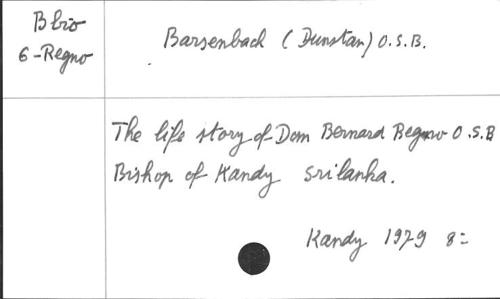 B bio
6-Regno
Barsenbach (Dunstan) O.S.B.
The life story of Dom Bernard Regno O.S.B
Bishop of Kandy Srilanka.
Kandy 1979 8=